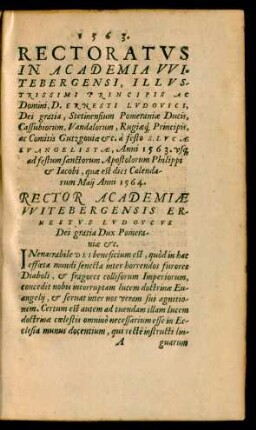 1563.
RECTORATVS
IN ACADEMIA VVI
TEBERGENSI, ILLVS
TRISSIMI PRINCIPIS AC
Domini, D. ERNESTI LVDOVICI,
Dei gratia, Stetinensium Pomeraniæ Ducis,
Cassubiorum, Vandalorum, Rugiæq́; Principis,
ac Comitis Gutzgouiæ &c. à festo S. LVCAE
EVANGELISTAE, Anni 1563. vsq́;
ad festum sanctorum, Apostolorum Philippi
& Iacobi, quæ est dies Calenda-
rum Maij Anni 1564.
RECTOR ACADEMIÆ
VVITEBERGENSIS ER-
NESTVS LVDOVICVS
Dei gratia Dux Pomera-
niæ &c.
INenarrabile DEI beneficium est, quòd in hac
effœta mundi senecta inter horrendos furores
Diaboli, & fragores collisorum Imperiorum,
concedit nobis incorruptam lucem doctrinæ Eu-
angelij, & seruat inter nos veram sui agnitio-
nem. Certum est autem ad tuendam illam lucem
doctrinæ cœlestis omninò necessarium esse in Ec-
clesia munus docentium, qui rectè instructi lin-
A guarum